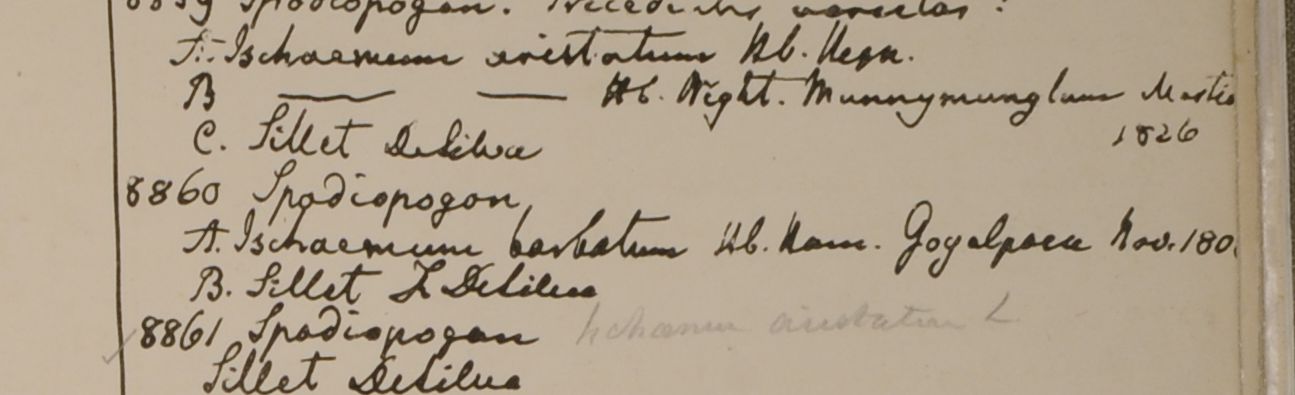 8859 Spodiopogon. Precedentis varietas?
A. Ischaemum aristatum Hb. Heyn.
B — — Hb. Wight. Munnymunglum Martio
1826
C. Sillet DeSilva
8860 Spodiopogon,
A. Ischaemum barbatum Hb. Ham. Goyalpara Nov. 180
B. Sillet F DeSilva
8861 Spodiopogon Ischaemum aristatum L
Sillet DeSilva